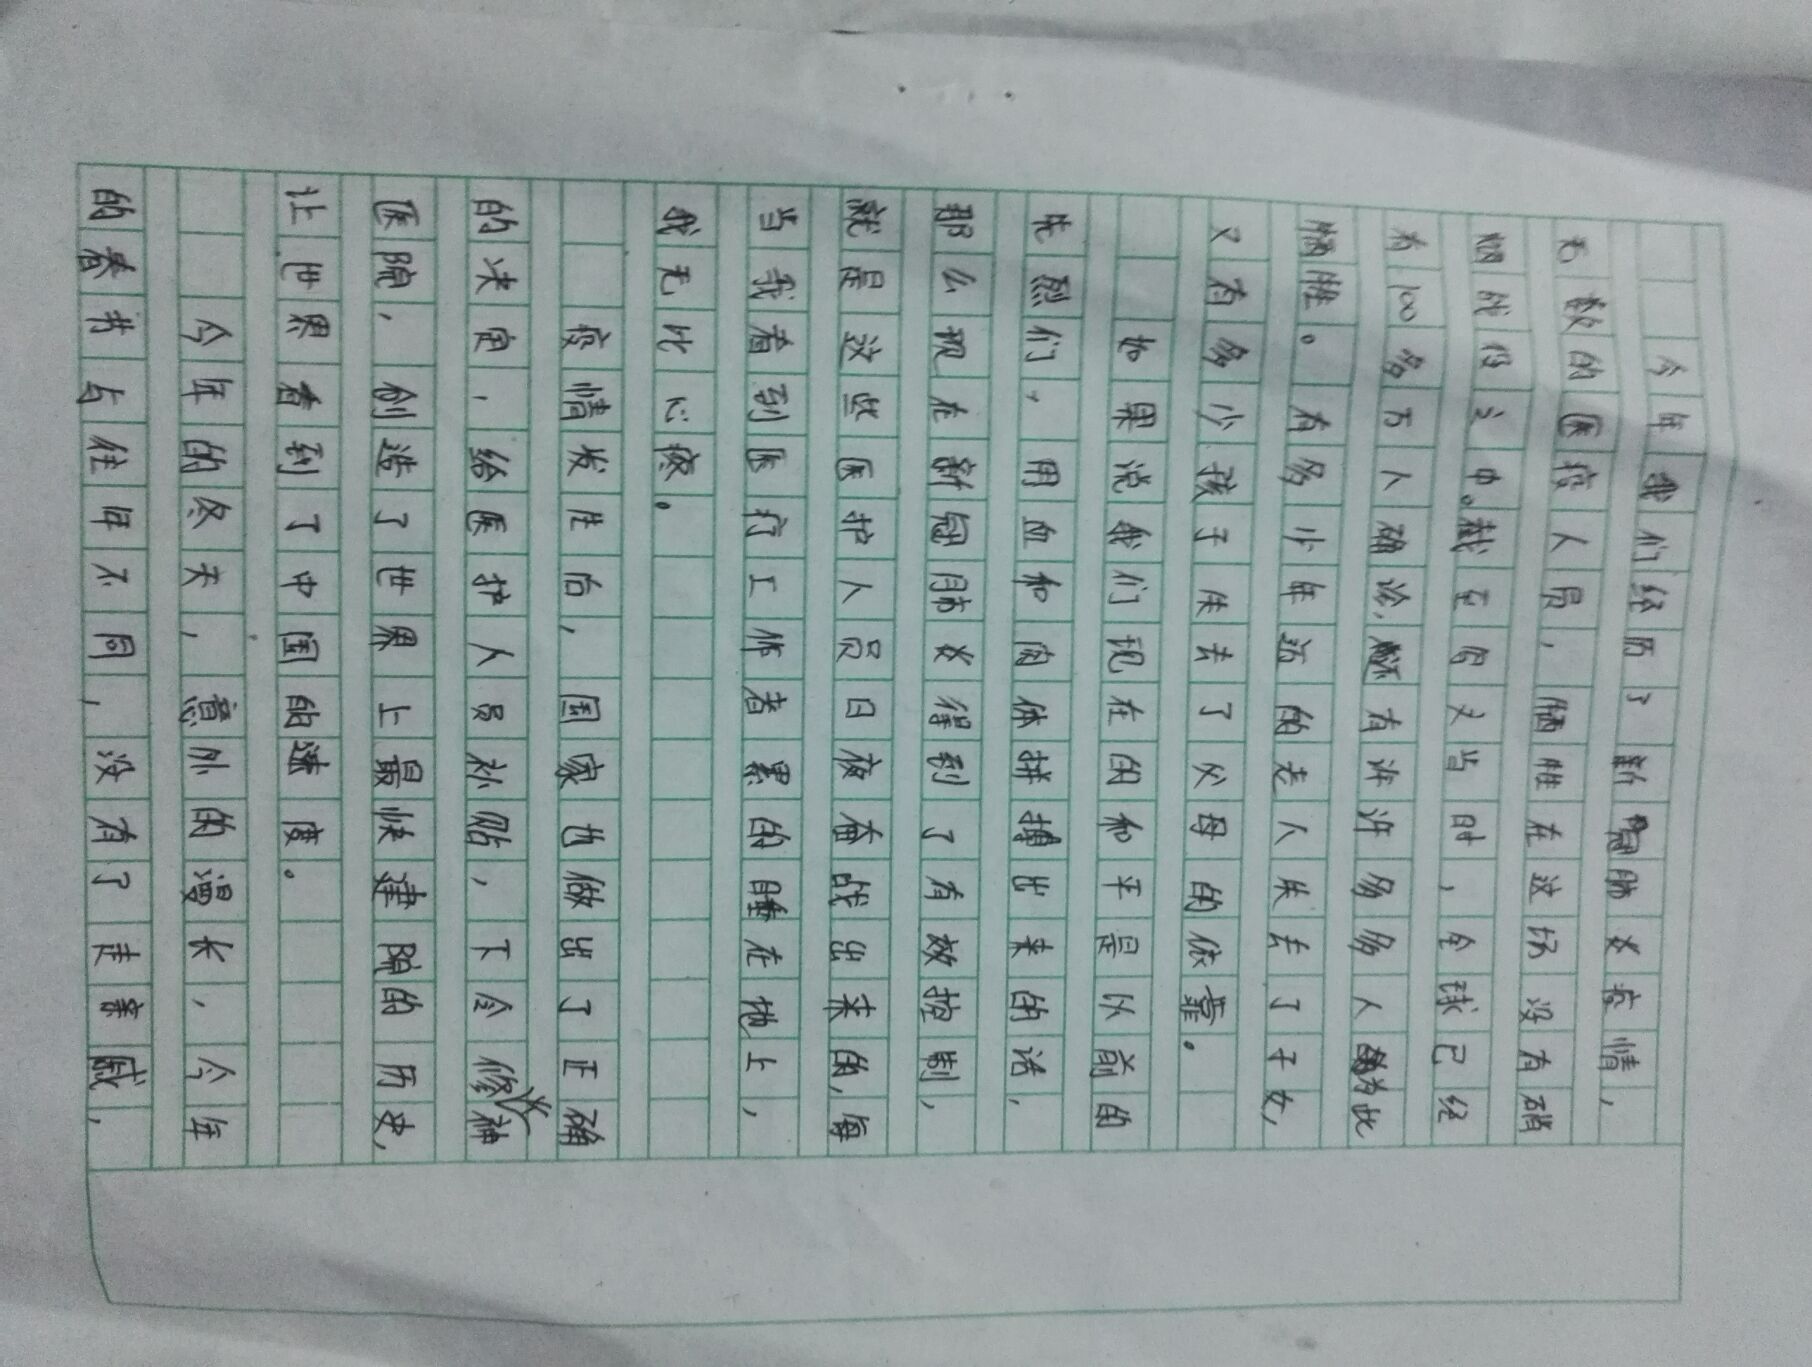 今年我们经历了新冠肺炎疫情,
无数的医疫人员,牺牲在这场没有硝
烟战役之中。截至写文当时,全球已经
有100多万人确诊,还有许许多多人为此
牺牲。有多少年迈的老人失去了子女,
又有多少孩子失去了父母的依靠。
如果说我们现在的和平是以前的
先烈们,用血和肉体拼搏出来的话,
那么现在新冠肺炎得到了有效控制,
就是这些医护人员日夜奋战出来的,每
当我看到医疗工作者累的睡在地上,
我无比心疼。
疫情发生后,国家也做出了正确
的决定,给医护人员补贴,下令修火神
医院,创造了世界上最快建院的历史,
让世界看到了中国的速度。
今年的冬天,意外的漫长,今年
的春节与往年不同,没有了走亲戚,